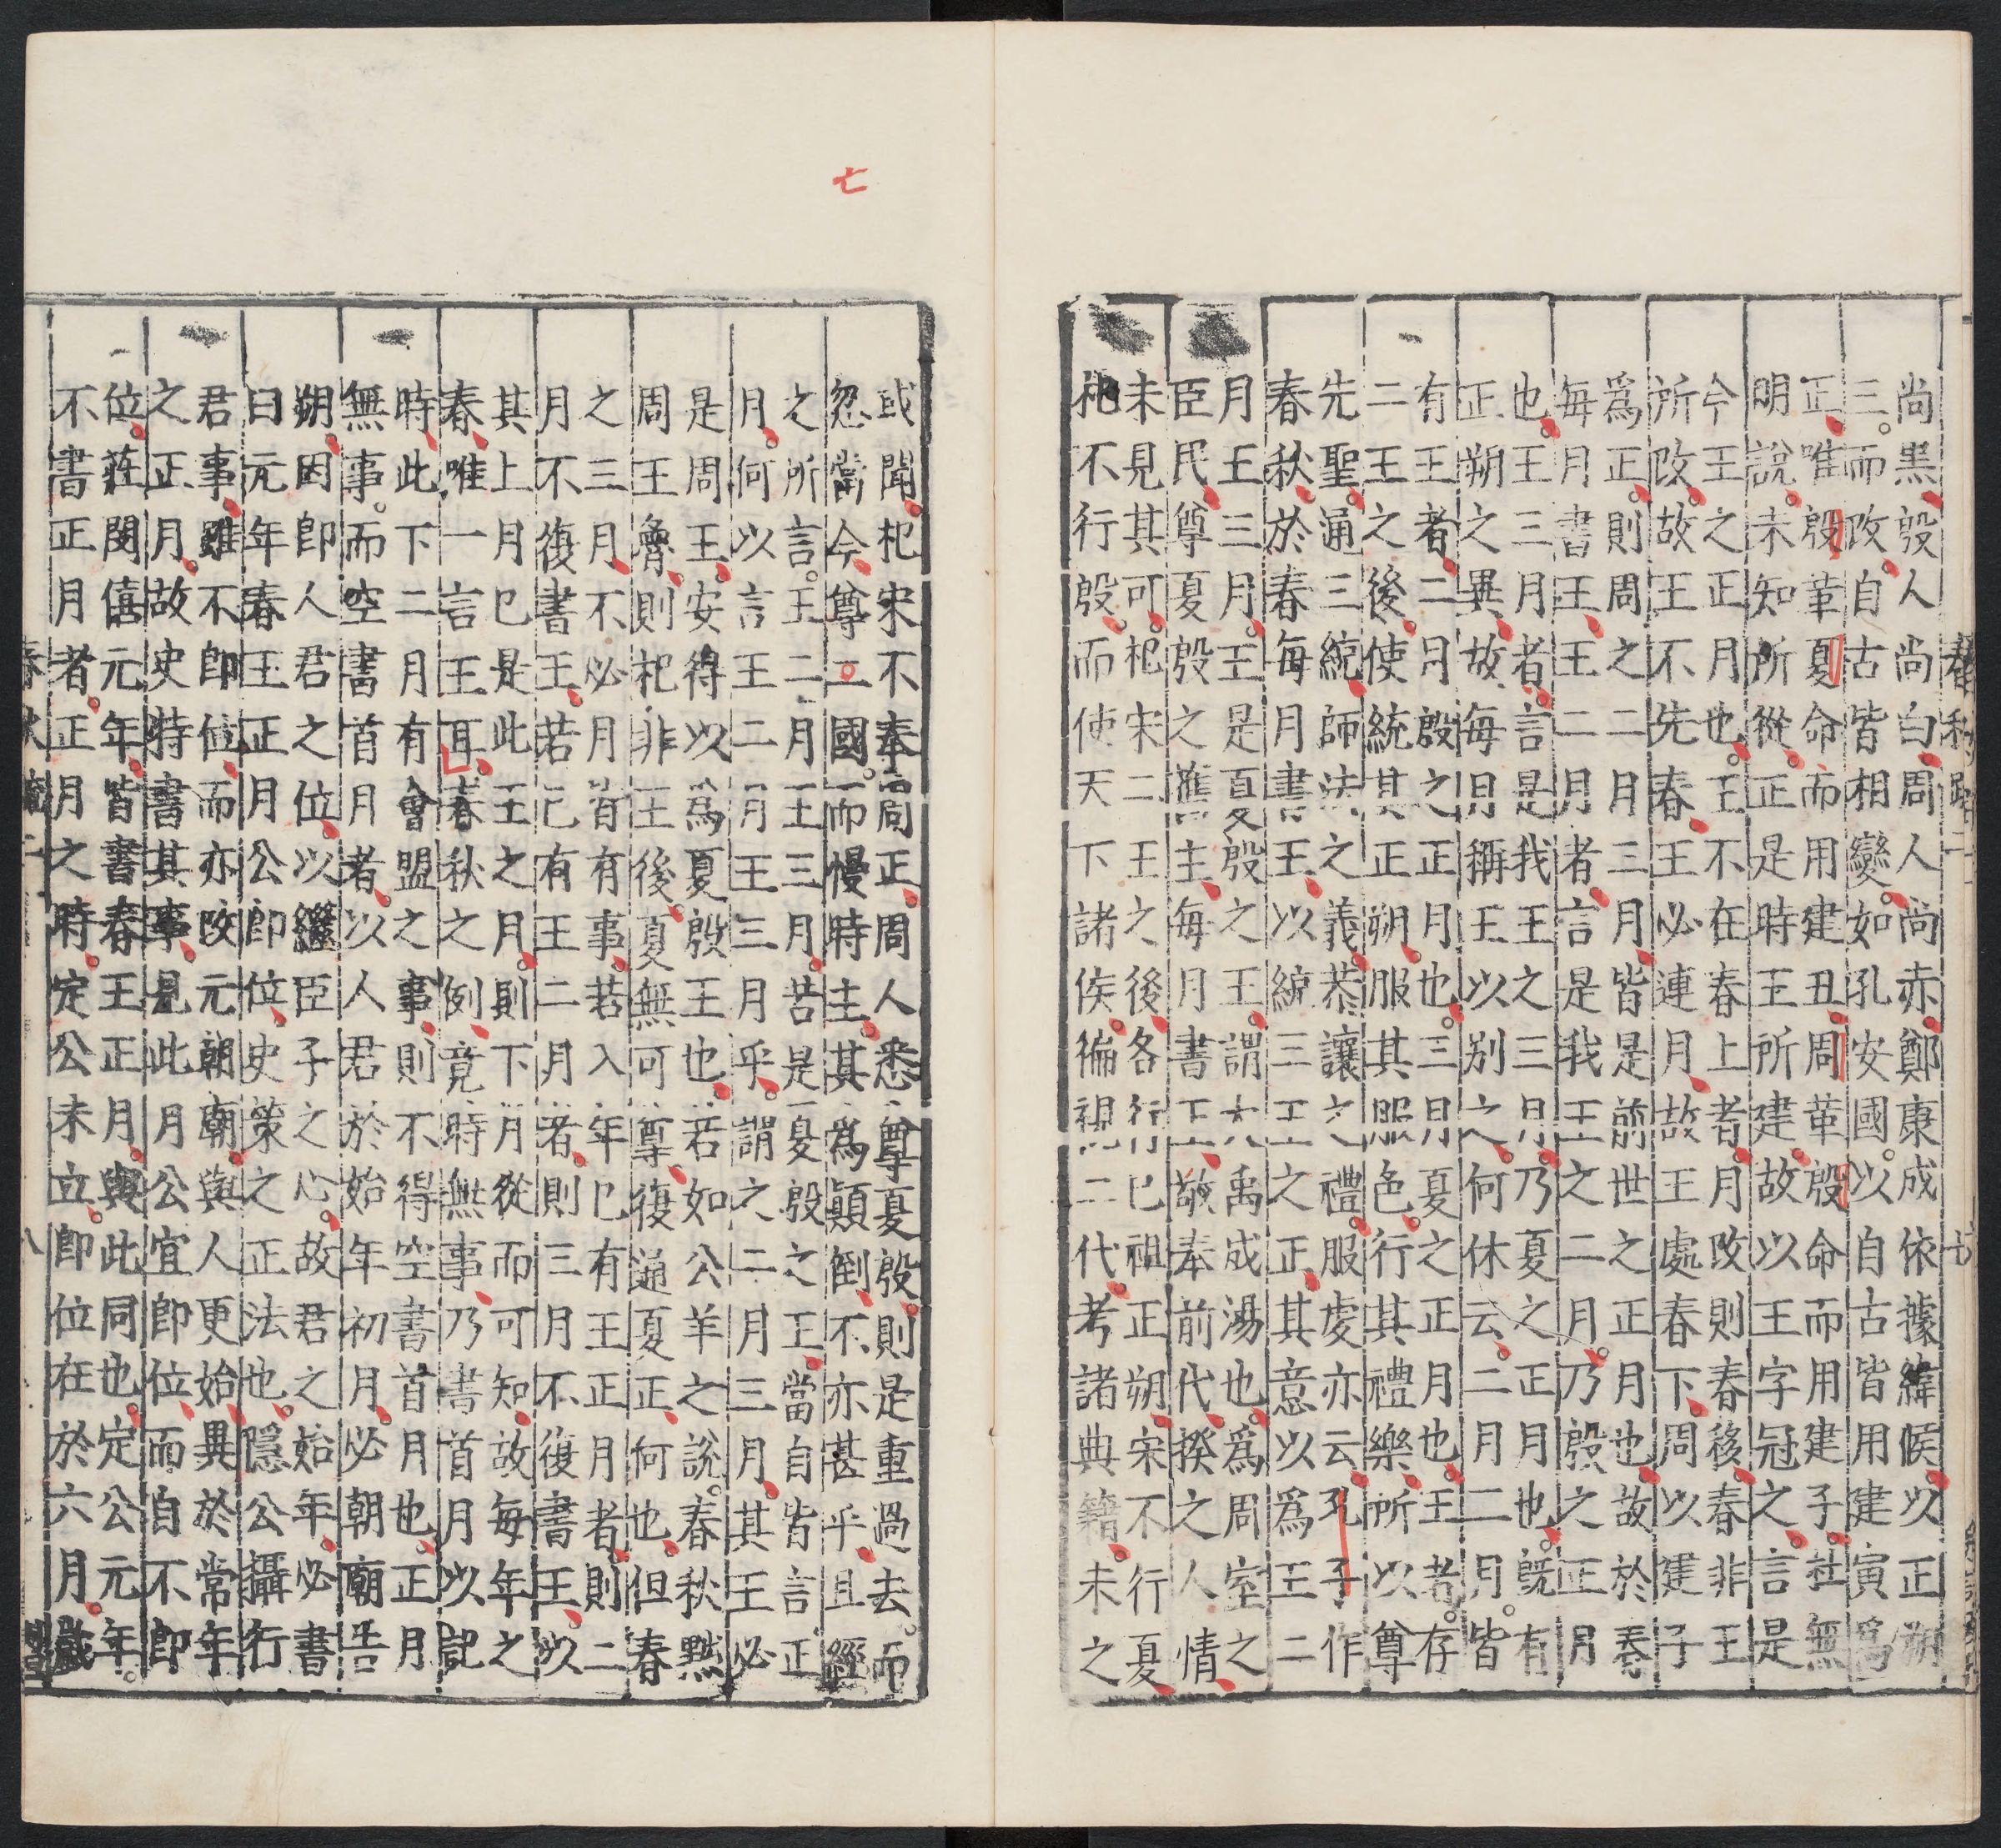 春秋疏二　七
尚黒殷人尚白周人尚赤鄭康成依據緯候以正朔
三而改自古皆相變如孔安國以自古皆用建寅爲
正唯殷革夏命而用建丑周革殷命而用建子杜無
明說未知所從正是時王所建故以王字冠之言是
今王之正月也王不在春上者月改則春移春非王
所改故王不先春王必連月故王處春下周以建子
爲正則周之二月三月皆是前世之正月也故於春
每月書王王二月者言是我王之二月乃殷之正月
也王三月者言是我王之三月乃夏之正月也既有
正朔之異故每月稱王以別之何休云二月二月皆
有王者二月殷之正月也三月夏之正月也王者存
二王之後使統其正朔服其服色行其禮樂所以尊
先聖通三統師法之義恭讓之禮服虔亦云孔子作
春秋於春每月書王以統三王之正其意以爲王二
月王三月王是夏殷之王謂大禹成湯也爲周室之
臣民尊夏殷之舊主每月書王敬奉前代揆之人情
未見其可杞宋二王之後各行已祖正朔宋不行夏
杞不行殷而使天下諸侯徧視二代考諸典籍未之
七
或聞杞宋不奉周正周人悉尊夏殷則是重過去而
忽當今尊二國而慢時主其爲顛倒不亦甚乎且經
之所言王二月王三月若是夏殷之王當自皆言正
月何以言王二月王三月乎謂之二月三月其王必
是周王安得以爲夏殷王也若如公羊之說春秋黜
周王魯則杞非王後夏無可尊復通夏正何也但春
之三月不必月首有事若入年已有王正月者則二
月不復書王若已有王二月者則三月不復書王以
其上月已是此王之月則下月從而可知故每年之
春唯一言王耳春秋之例竟時無事乃書首月以記
時此下二月有會盟之事則不得空書首月也正月
無事而空書首月者以人君於始年初月必朝廟告
朔因卽人君之位以繼臣子之心故君之始年必書
曰元年春王正月公卽位史策之正法也隱公攝行
君事雖不卽位而亦改元朝廟與人更始異於常年
之正月故史特書其事見此月公宜卽位而自不卽
位莊閔僖元年皆書春王正月與此同也定公元年
不書正月者正月之時定公未立卽位在於六月歲
春秋疏二　八